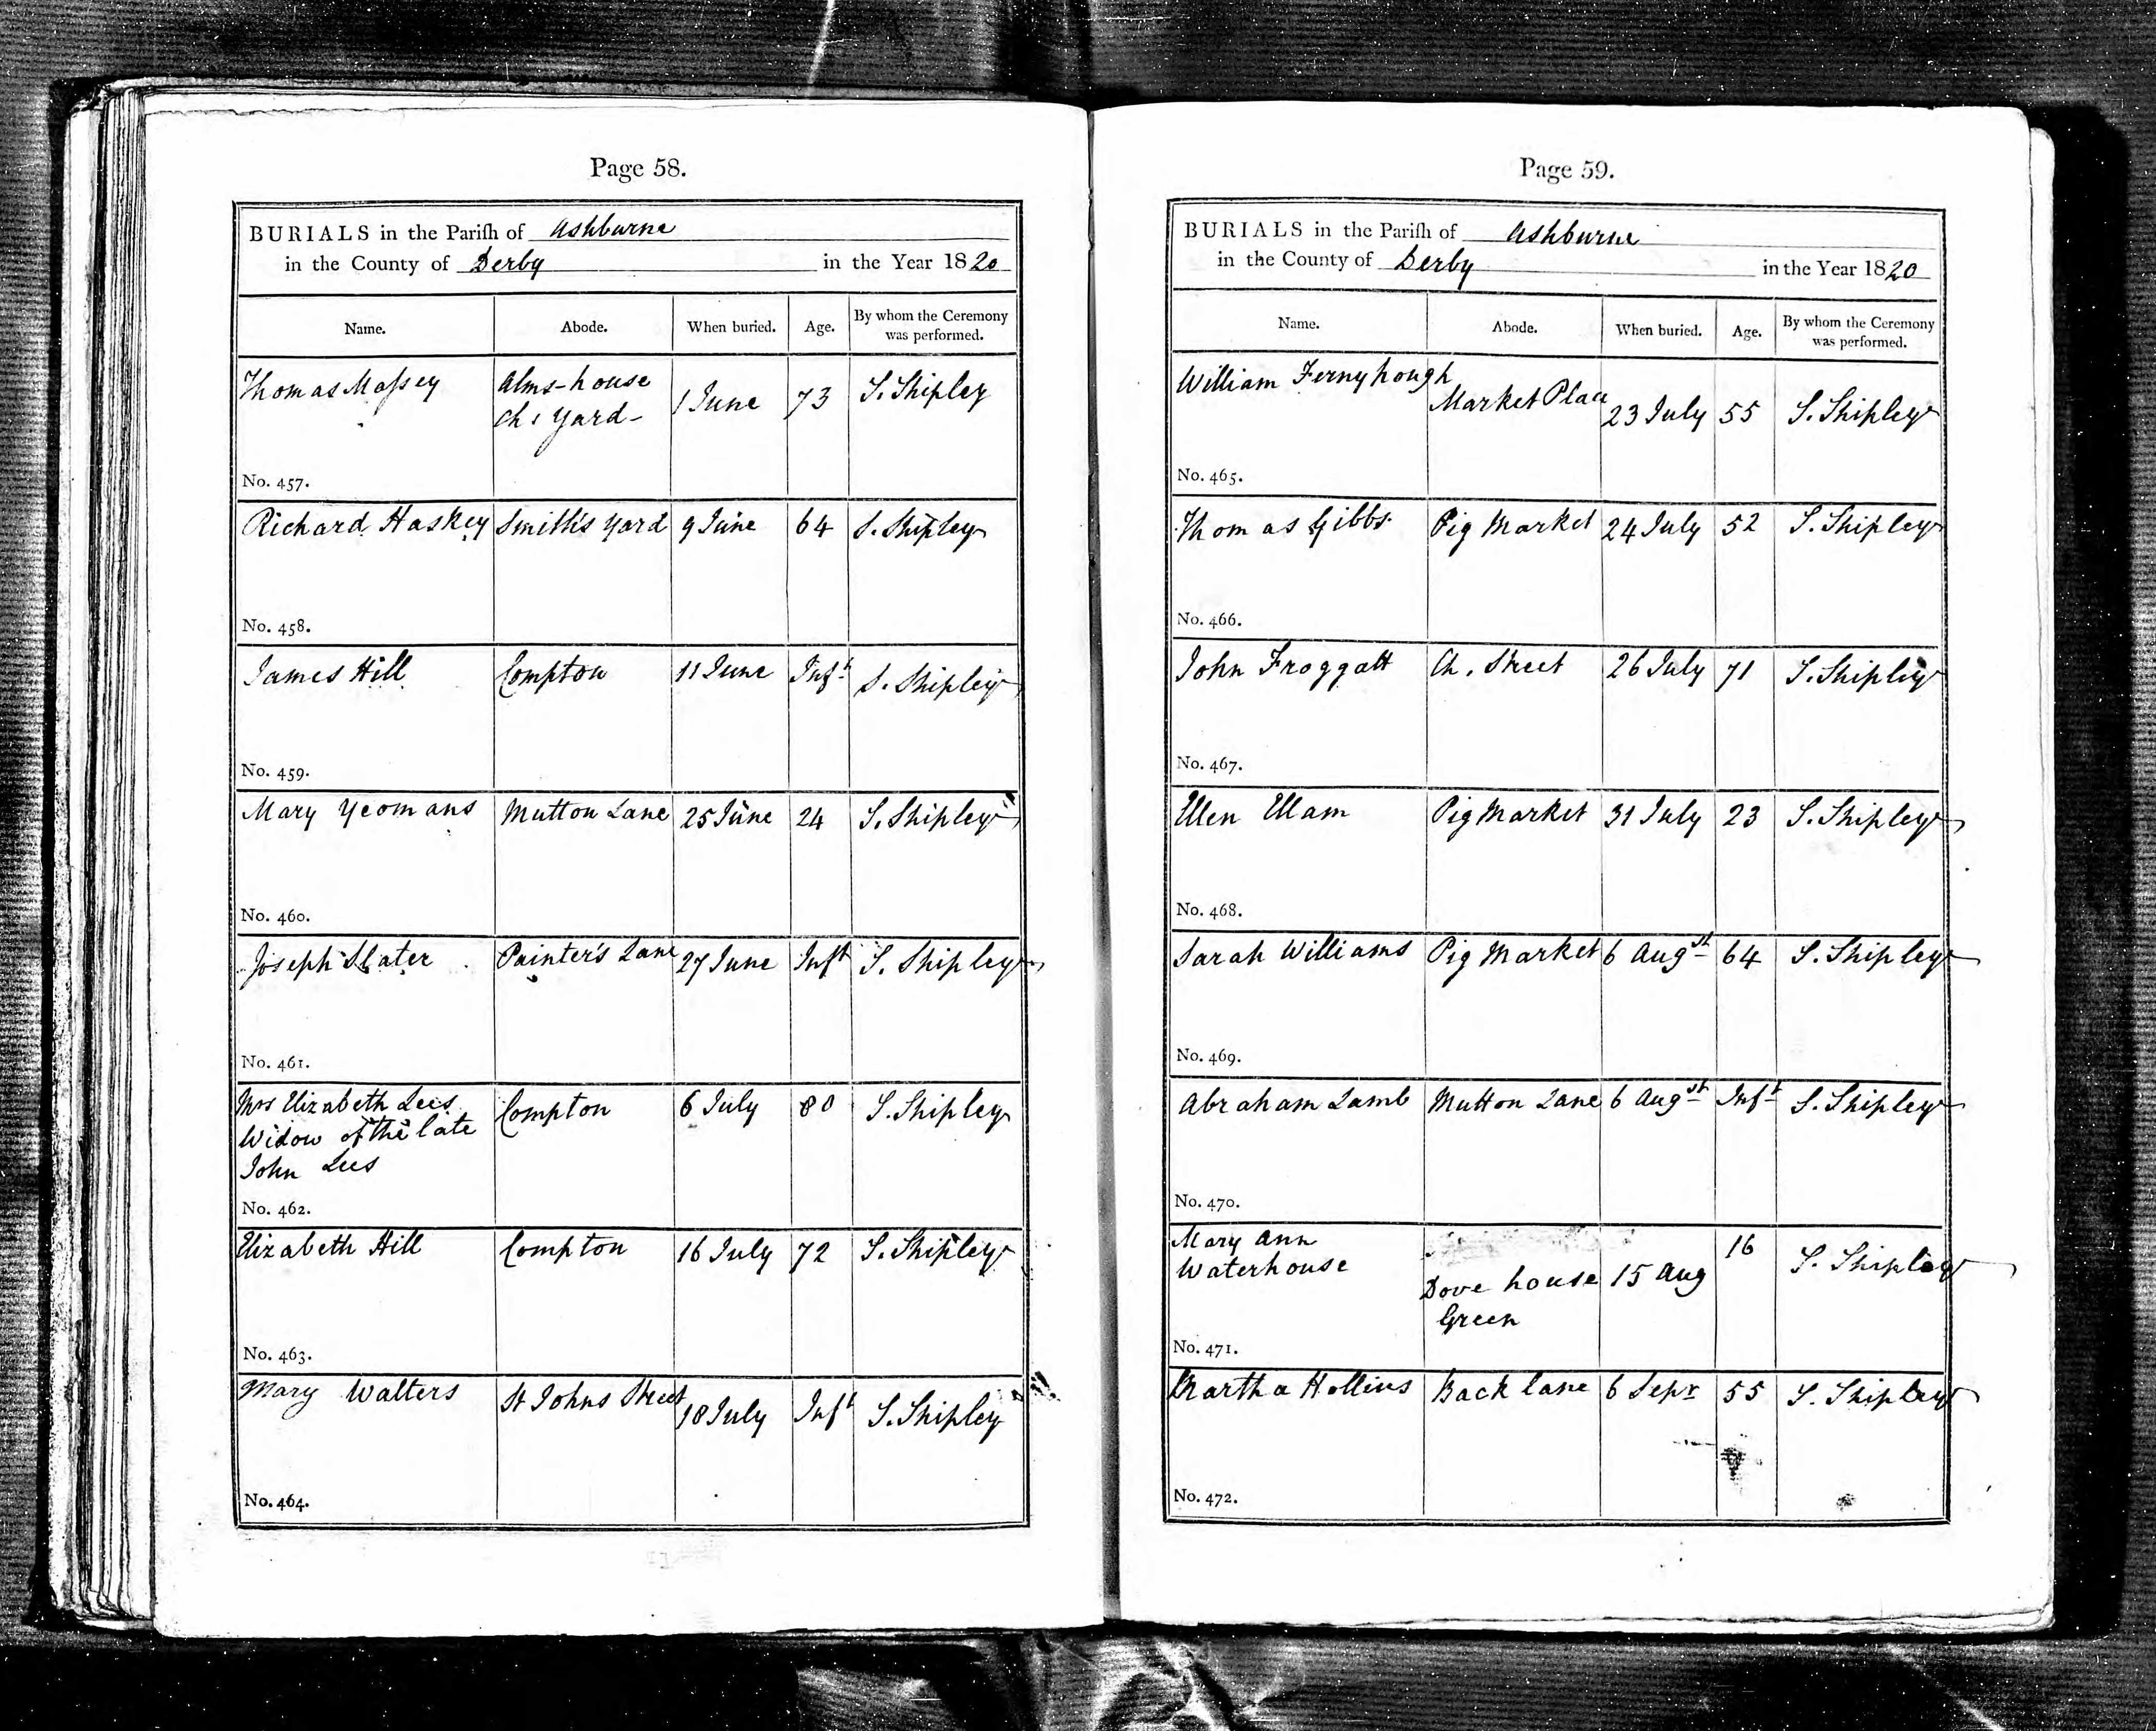 Page 58.
BURIALS in the Parish of Ashburne
in the County of Derby in the Year 1820
Name. Abode. When buried. Age. By whom the Ceremony was performed.
Thomas Massey Alms-house 1 June 73 S. Shipley
Ch: Yard-
No. 457.
Richard Haskey Smith's Yard 9 June 64 S. Shipley
No. 458.
James Hill Compton 11 June Inft S. Shipley
No. 459.
Mary Yeomans Mutton Lane 25 June 24 S. Shipley
No. 460.
Joseph Slater Painter's Lane 27 June Inft S. Shipley
No. 461.
Mrs Elizabeth Lees Compton 6 July 80 S. Shipley
Widow of the late
John Lees
No. 462.
Elizabeth Hill Compton 16 July 72 S. Shipley
No. 463.
Mary Walters St Johns Street 18 July Inft S. Shipley
No. 464.
Page 59.
BURIALS in the Parish of Ashburne
in the County of Derby in the Year 1820
Name. Abode. When buried. Age. By whom the Ceremony was performed.
William Fernyhough Market Place 23 July 55 S. Shipley
No. 465.
Thomas Gibbs Pig Market 24 July 52 S. Shipley
No. 466.
John Froggatt Ch. Street 26 July 71 S. Shipley
No. 467.
Ellen Ellam Pig Market 31 July 23 S. Shipley
No. 468.
Sarah Williams Pig Market 6 Augst 64 S. Shipley
No. 469.
Abraham Lamb Mutton Lane 6 Augst Inft S. Shipley
No. 470.
Mary Ann 16
Waterhouse Dove house 15 Aug S. Shipley
Green
No. 471.
Martha Hollins Back lane 6 Sepr 55 S. Shipley
No. 472.